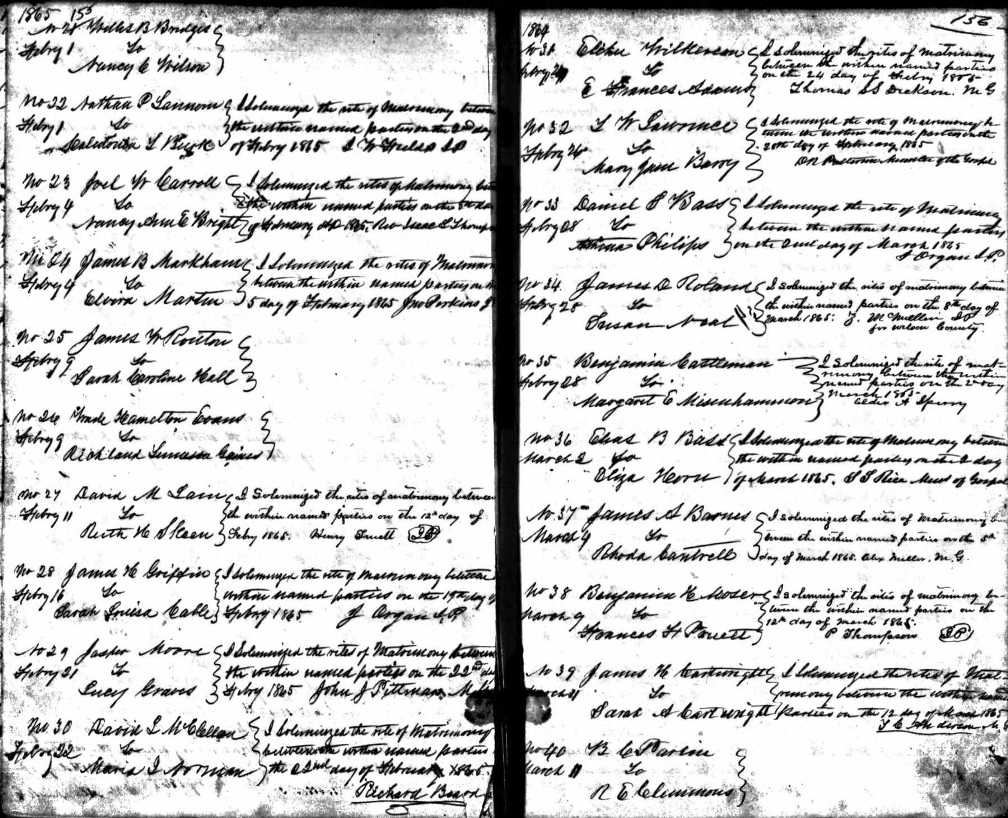 1865 155
No 21 Willis B Bridges
Febry 1 To
Nancy C Wilson
No 22 Nathan P Lannom I Solemnized the rite of Matrimony between
Febry 1 To the within named parties on the 2nd day
L of Febry 1865 J W
No 23 Joel W Carroll I Solemnized the rites of Matrimony
Febry 4 To the within named parties on the day
Nancy Ann E Bright of February 1865. Rev Isaac
No 24 James B Markham I Solemnized the rites of Matrimony
Febry 4 To between the within named parties on
Elvira Martin 5 day of February 1865 Jno Perkins J
No 25 James W
Febry 9 To
Sarah Caroline Hall
No 26 Wade Hamelton Evans
Febry 9 To
Richland Gaines
No 27 David M Lain I Solemnized the rites of matrimony between
Febry 11 To the within named parties on the 12th day of
Ruth H Febry 1865. Henry JP
No 28 James H Griffin I Solemnized the rite of Matrimony between
Febry 16 To within named parties on the 19th day of
Sarah Louisa Cable Febry 1865 J Organ J.P.
No 29 Jasper Moore I Solemnized the rites of Matrimony between
Febry 21 To the within named parties on the 22nd day
Lucy Graves Febry 1865 John J Pittman
No 30 David L McClellan I Solemnized the rite of Matrimony
Febry 22 To between the within named parties
Maria J Norman the 22nd day of February 1865
Richard Beard
156
1864
No 31 Wilkerson I Solemnized the rites of matrimony
To between the within named parties
E Frances Adams on the 24 day of Febry 1865
Thomas Dickson. M G
No 32 L W Lawrence I Solemnized the rite of Matrimony be
Febry 24 To tween the within named parties on the
Mary Jane Berry 28th day of February, 1865
Minister of the Gospel
No 33 Daniel P Bass I Solemnized the rite of Matrimony
Febry 28 To between the within named parties
Philips on the 2nd day of March 1865
J Organ J.P
No 34. James D Roland I Solemnized the rites of matrimony between
Febry 28 To the within named parties on the 8th day of
Susan Neal March 1865. J. McMillen JP
for Wilson County
No 35 Benjamin Cattleman I Solemnized the rite of mat-
Febry 28 To rimony between the within
Margaret E Misenhammer named parties on the 2 day
March 1865
A Sperry
No 36 Elias B Bass I Solemnized the rite of Matrimony between
March 2 To the within named parties on the 2 day
Eliza Horn of March 1865. Rice Minis of Gospel
No 37 James A Barnes I Solemnized the rites of Matrimony be
March 4 To tween the within named parties on the 5th
Rhoda Cantrell day of March 1865. Alex M. G.
No 38 Benjamin H Moser I Solemnized the rites of matrimony be-
March 9 To tween the within named parties on the
Frances H 12th day of March 1865.
P Thompson JP
No 39 James H Cartwright I Solemnized the rites of Mat
March 11 To rimony between the within named
Sarah A Cartwright parties on the 12 day of March 1865
No 40 B C
March 11 To
R E Clemmons